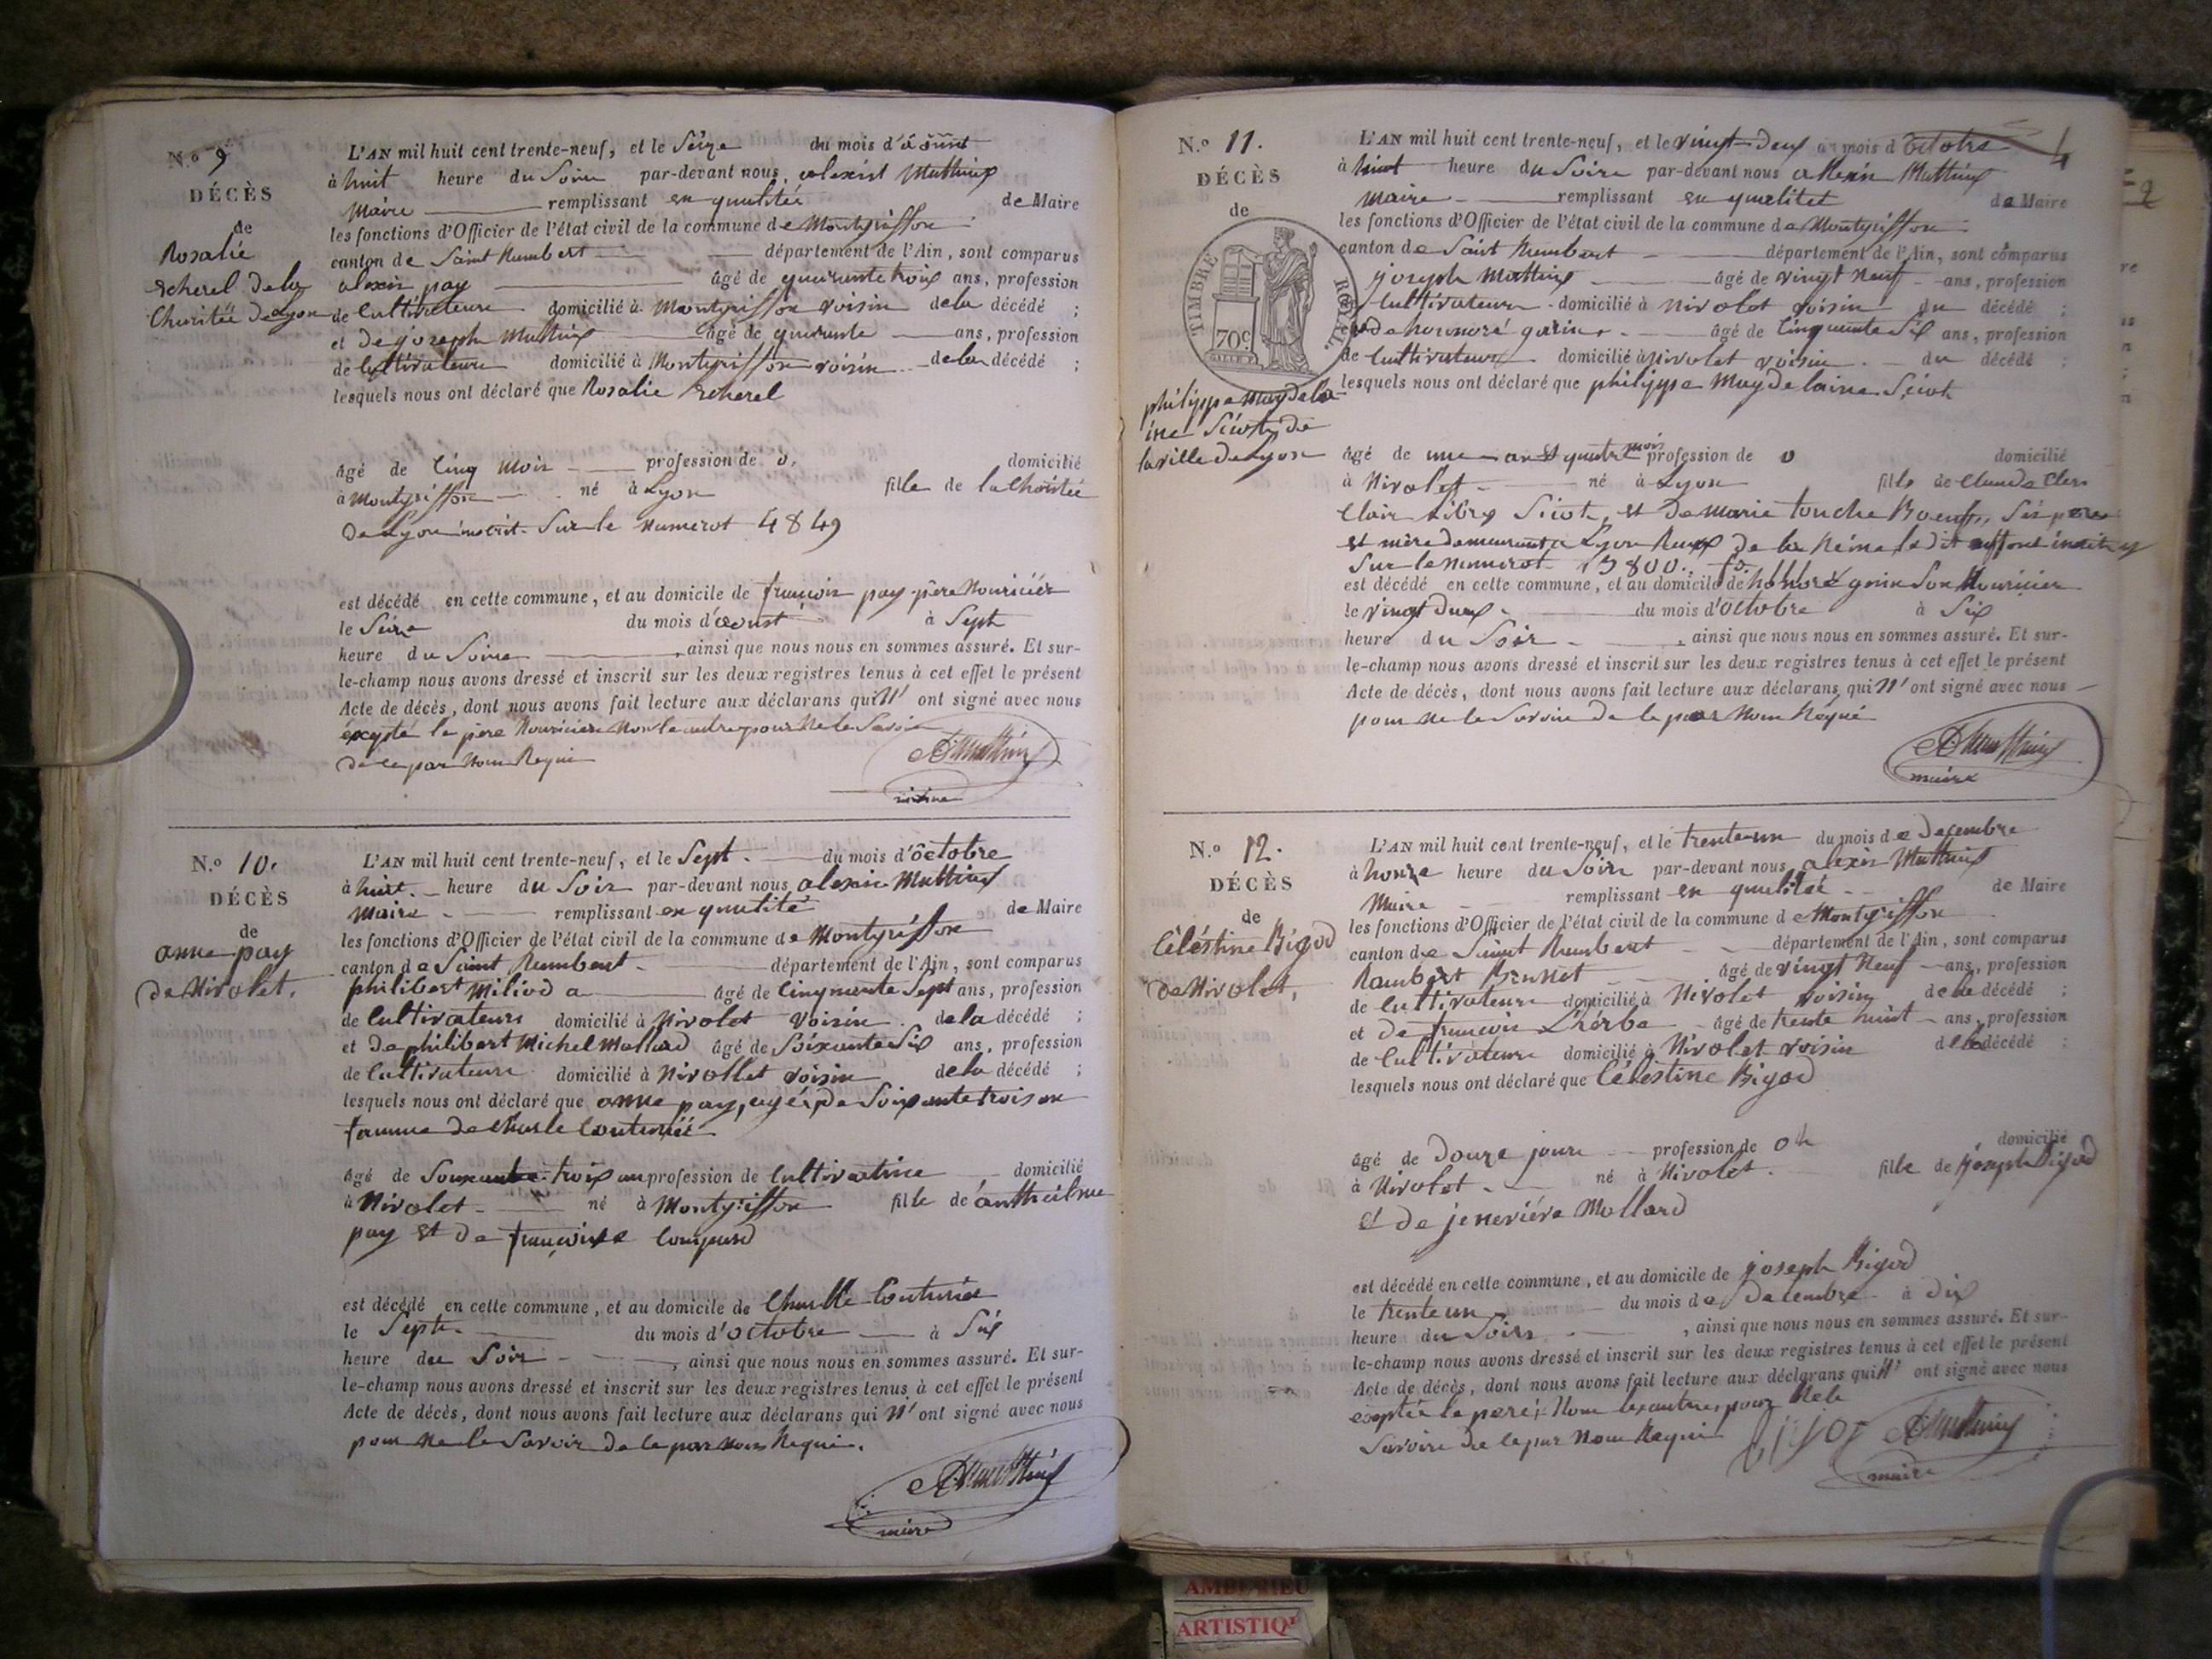 N.º 9
DÉCÈS
de
Rosalie
Scherel dela
Charitée de Lyon
L'AN mil huit cent trente-neuf, et le Seize du mois d'aoûst
à huit heure du Soire par-devant nous, alexist Mathieux
Maire remplissant en qualitée de Maire
les fonctions d'Officier de l'état civil de la commune de Montgriffon
canton de Saint Rambert département de l'Ain, sont comparus
alexis pay âgé de quarante trois ans, profession
de Cultivateure domicilié à Montgriffon voisin dela décédé ;
et de joseph Mathieux âgé de quarante ans, profession
de Cultivateure domicilié à Montgriffon voisin dela décédé ;
lesquels nous ont déclaré que Rosalie Scherel
âgé de Cinq Mois profession de o, domicilié
à Montgriffon né à Lyon fille de la Charitée
De Lyon inscrit Sur le Numerot 4849
est décédé en cette commune, et au domicile de françois pay père Nouricier
le Seize du mois d'aoust à Sept
heure du Soire , ainsi que nous nous en sommes assuré. Et sur-
le-champ nous avons dressé et inscrit sur les deux registres tenus à cet effet le présent
Acte de décès, dont nous avons fait lecture aux déclarans qui N' ont signé avec nous
éxcepté le père Nouricier Non le autre pour Ne le Savoir
de ce par Nous Requi
AMathieux
maire
N.º 10.
DÉCÈS
de
anne pay
de Nivolet.
L'AN mil huit cent trente-neuf, et le Sept. du mois d'octobre
à huit heure du Soir par-devant nous alexis Mathieux
Maire remplissant en qualité de Maire
les fonctions d'Officier de l'état civil de la commune de Montgriffon
canton de Saint Rambert département de l'Ain, sont comparus
philibert Miliod a âgé de Cinquante Sept ans, profession
de Cultivateure domicilié à Nivolet voisin dela décédé ;
et de philibert Michel Mollard âgé de Soixante Six ans, profession
de Cultivateure domicilié à Nivollet voisin dela décédé ;
lesquels nous ont déclaré que anne pay, agée de Soixante trois an
famme de Charle Couturié
âgé de Soixante trois an profession de Cultivatrice domicilié
à Nivolet né à Montgriffon fille de anthelme
pay et de françoise
est décédé en cette commune, et au domicile de Charlle Couturier
le Sept. du mois d'octobre à Six
heure du Soir , ainsi que nous nous en sommes assuré. Et sur-
le-champ nous avons dressé et inscrit sur les deux registres tenus à cet effet le présent
Acte de décès, dont nous avons fait lecture aux déclarans qui N' ont signé avec nous
pour Ne le Savoir de ce par nous Requi.
AMathieux
maire
N.º 11.
DÉCÈS
de
TIMBRE ROYAL.
70c
philippe Magdela-
ine Siiot de
la ville de Lyon
4
L'AN mil huit cent trente-neuf, et le vingt-Deux du mois d'Octobre
à huit heure du Soire par-devant nous allexis Mathieux
Maire remplissant en qualitet de Maire
les fonctions d'Officier de l'état civil de la commune de Montgriffon
canton de Saint Rambert département de l'Ain, sont comparus
joseph Mathieux âgé de vingt Neuf ans, profession
Cultivateure domicilié à Nivolet voisin du décédé ;
et de honnoré gorin âgé de Cinquante Six ans, profession
de Cultivateure domicilié à Nivolet voisin du décédé ;
lesquels nous ont déclaré que philippe Magdelaine Siiot
âgé de une an et quatre mois profession de o domicilié
à Nivolet né à Lyon fille de Claude
Clair Siiot, et De marie touche Ses pere
et mère demeurant a Lyon de la Reine le dit
Sur le Numerot 13800.
est décédé en cette commune, et au domicile de honnoré gorin Son Nouricier
le vingt Deux du mois d'octobre à Six
heure du Soir , ainsi que nous nous en sommes assuré. Et sur-
le-champ nous avons dressé et inscrit sur les deux registres tenus à cet effet le présent
Acte de décès, dont nous avons fait lecture aux déclarans qui N' ont signé avec nous
pour ne le Savoire de ce par Nous Réqué
AMathieux
maire
N.º 12.
DÉCÈS
de
Céléstine Bigod
de Nivolet,
L'AN mil huit cent trente-neuf, et le trente-un du mois de Decembre
à honze heure du Soire par-devant nous alexis Mathieux
Maire remplissant en qualitée de Maire
les fonctions d'Officier de l'état civil de la commune de Montgriffon
canton de Saint Rambert département de l'Ain, sont comparus
Rambert Brunet âgé de vingt Neuf ans, profession
de Cultivateure domicilié à Nivolet voisin dela décédé ;
et de françois Lhérba âgé de trente huit ans, profession
de Cultivateure domicilié à Nivolet voisin dela décédé ;
lesquels nous ont déclaré que Célestine Bigod
âgé de Douze jours profession de domicilié
à Nivolet né à Nivolet fille de joseph Bigod
et de jeneviéve Mollard
est décédé en cette commune, et au domicile de joseph Bigod
le trente un du mois de Decembre à dix
heure du Soir , ainsi que nous nous en sommes assuré. Et sur-
le-champ nous avons dressé et inscrit sur les deux registres tenus à cet effet le présent
Acte de décès, dont nous avons fait lecture aux déclarans qui N' ont signé avec nous
exeptée le pere, Non les autres pour Nele
Savoire de ce par Nous Requi
AMathieux
maire
AMBERIEU
ARTISTIQ